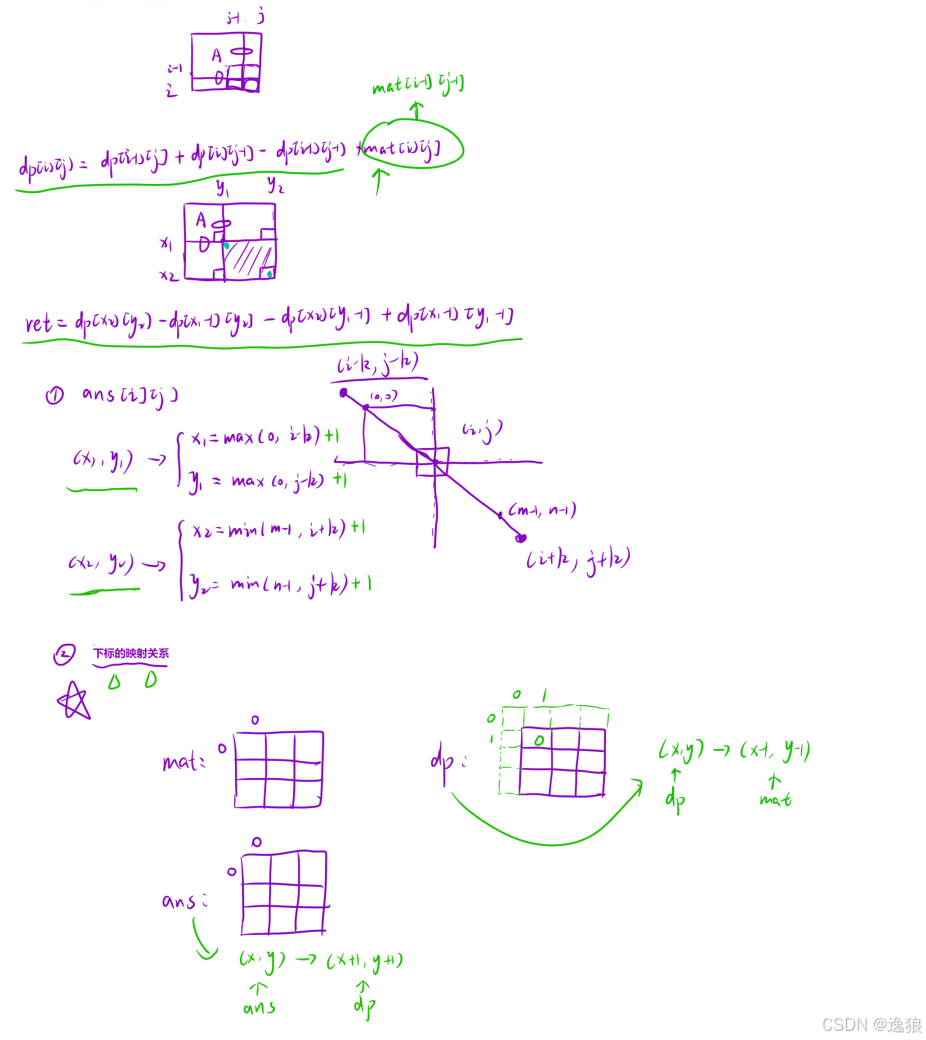 j-1 j
A
i-1
D
i
mat[i-1][j-1]
dp[i][j] = dp[i-1][j] + dp[i][j-1] - dp[i-1][j-1] + mat[i][j]
y1 y2
A
x1
D
x2
ret = dp[x2][y2] - dp[x1-1][y2] - dp[x2][y1-1] + dp[x1-1][y1-1]
(i-k, j-k)
① ans[i][j]
(0,0)
(i,j)
x1 = max(0, i-k)+1
(x1, y1) →
y1 = max(0, j-k)+1
(m-1, n-1)
x2 = min(m-1, i+k)+1
(i+k, j+k)
(x2, y2) →
y2 = min(n-1, j+k)+1
② 下标的映射关系
0 1
0
0
0
1
0
mat:
dp:
(x,y) → (x-1, y-1)
dp mat
0
0
ans:
(x,y) → (x+1, y+1)
ans dp
CSDN @逸狼